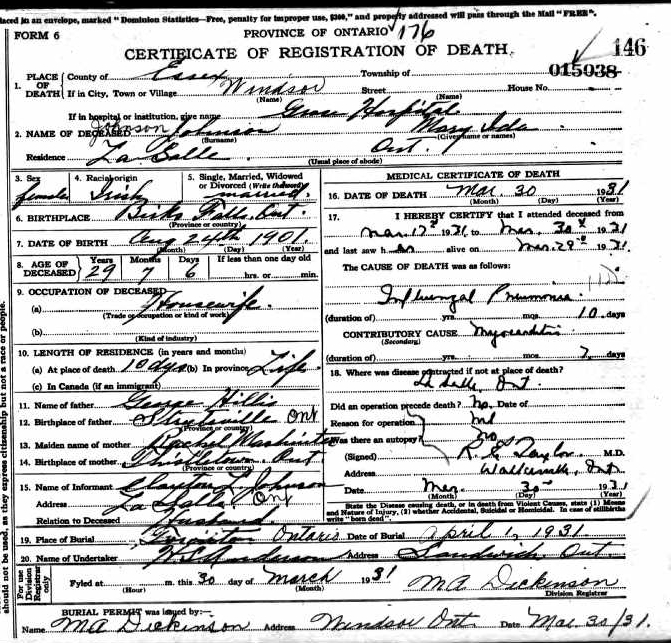 laced in an envelope, marked "Dominion Statistics—Free, penalty for improper use, $300," and properly addressed will pass through the Mail "FREE".
FORM 6 PROVINCE OF ONTARIO 176
CERTIFICATE OF REGISTRATION OF DEATH. 146
015038
1. PLACE OF DEATH County of Essex Township of
If in City, Town or Village Windsor Street House No.
(Name) (Name)
If in hospital or institution, give name Grace Hospital
2. NAME OF DECEASED Johnson Johnson Mary Ida
(Surname) (Given name or names)
Residence La Salle Ont.
(Usual place of abode)
3. Sex female 4. Racial origin Irish 5. Single, Married, Widowed or Divorced (Write the word) married
6. BIRTHPLACE Ont.
(Province or country)
7. DATE OF BIRTH Aug 24th 1901.
(Month) (Day) (Year)
8. AGE OF DECEASED Years 29 Months 7 Days 6 If less than one day old
hrs. or min.
9. OCCUPATION OF DECEASED
(a) Housewife.
(Trade or occupation or kind of work)
(b)
(Kind of industry)
10. LENGTH OF RESIDENCE (in years and months)
(a) At place of death 10 dys (b) In province Life
(c) In Canada (if an immigrant)
11. Name of father George Hillis
12. Birthplace of father Ont
(Province or country)
13. Maiden name of mother Rachel
14. Birthplace of mother Ont
(Province or country)
15. Name of Informant Clayton L. Johnson
Address La Salle, Ont
Relation to Deceased Husband
MEDICAL CERTIFICATE OF DEATH
16. DATE OF DEATH Mar. 30 1931
(Month) (Day) (Year)
17. I HEREBY CERTIFY that I attended deceased from
Mar. 17th 1931 to Mar. 30th 1931
and last saw h er alive on Mar. 29th 1931.
The CAUSE OF DEATH was as follows:
Influenzal Pneumonia
(duration of) yrs. mos. 10 days
CONTRIBUTORY CAUSE Myocarditis
(Secondary)
(duration of) yrs. mos. 7 days
18. Where was disease contracted if not at place of death?
La Salle, Ont.
Did an operation precede death? No. Date of
Reason for operation nil
Was there an autopsy? no
(Signed) Taylor M.D.
Address Walkerville, Ont.
Date Mar. 30 1931
(Month) (Day) (Year)
State the Disease causing death, or in death from Violent Causes, state (1) Means and Nature of Injury, (2) whether Accidental, Suicidal or Homicidal. In case of stillbirths write "born dead".
19. Place of Burial Ontario Date of Burial April 1, 1931
20. Name of Undertaker Anderson Address Sandwich, Ont.
For use of Division Registrar only
Fyled at m. this 30 day of March 1931 M A Dickinson
(Hour) (Month) Division Registrar
BURIAL PERMIT was issued by:—
Name M A Dickinson Address Windsor Ont. Date Mar. 30/31.
should not be used, as they express citizenship but not a race or people.